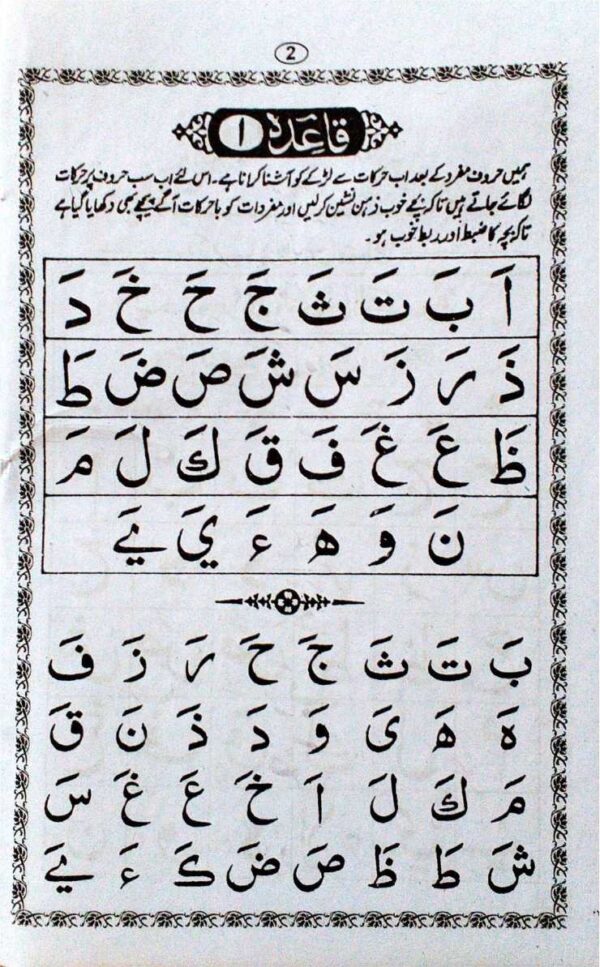 2
قاعدہ ۱
ہمیں حروف مفرد کے بعد اب حرکات سے لڑکے کو آشنا کرانا ہے۔ اس لئے اب سب حروف پر حرکات
لگائے جاتے ہیں تاکہ بچے خوب ذہن نشین کر لیں اور مفردات کو باحرکات آگے پیچھے بھی دکھایا گیا ہے
تاکہ بچہ کا ضبط اور ربط خوب ہو۔
اَ بَ تَ ثَ جَ حَ خَ دَ
ذَ رَ زَ سَ شَ صَ ضَ طَ
ظَ عَ غَ فَ قَ كَ لَ مَ
نَ وَ هَ ءَ يَ یَے
بَ تَ ثَ جَ حَ رَ زَ فَ
ہَ هَ یَ وَ دَ ذَ نَ قَ
مَ كَ لَ اَ خَ عَ غَ سَ
شَ طَ ظَ صَ ضَ کَ ءَ یَے